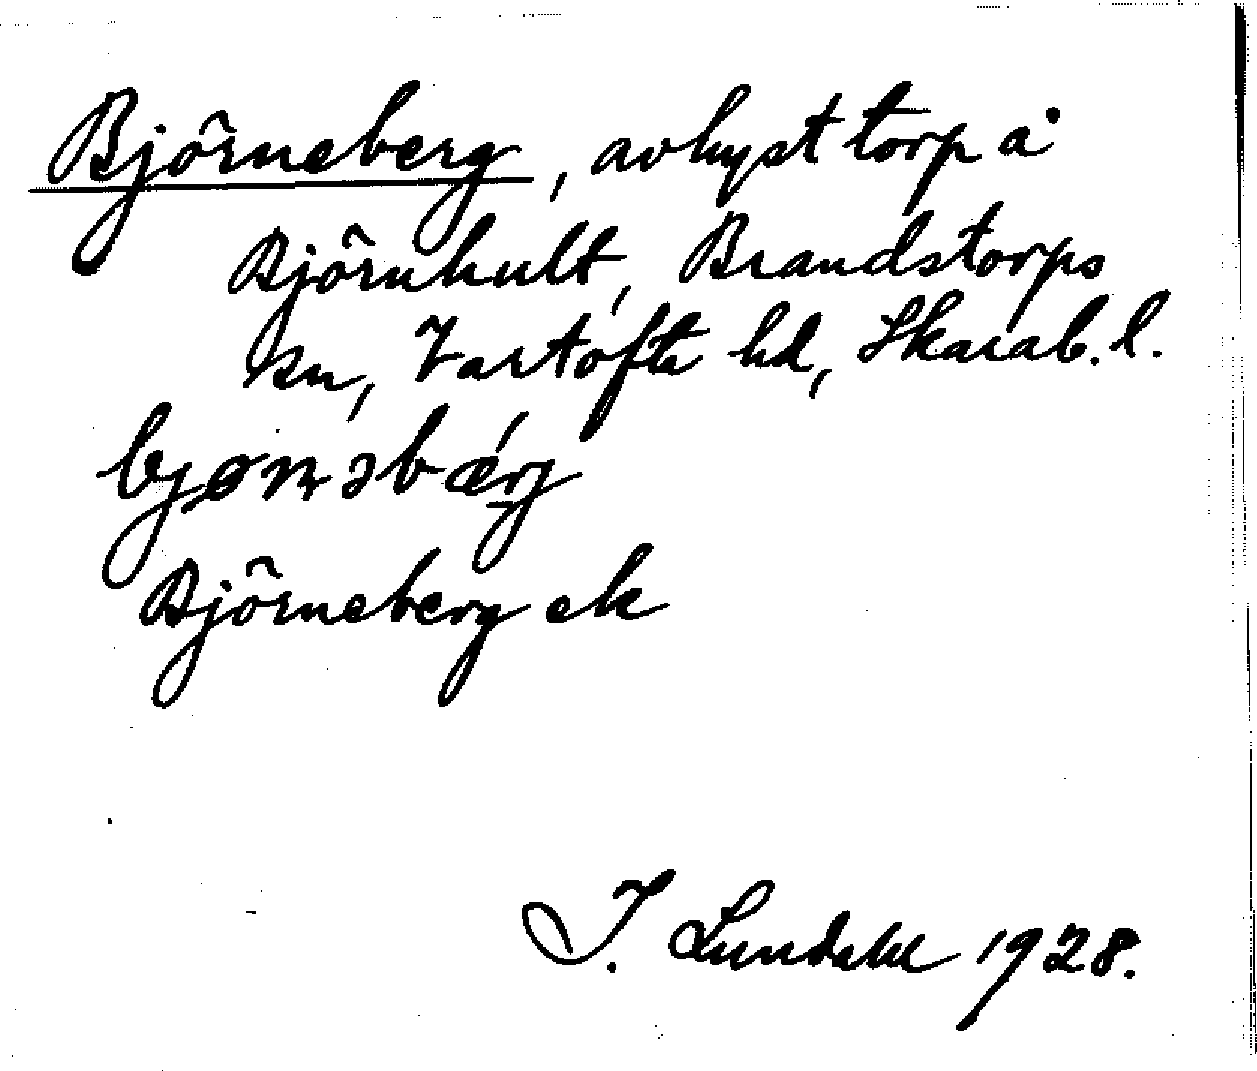 Björneberg, avhyst torp å
Björnhult, Brandstorps
sn, Vartofta hd, Skarab. l.
bjønəbærj
Björneberg ek
I. Lundahl 1928.